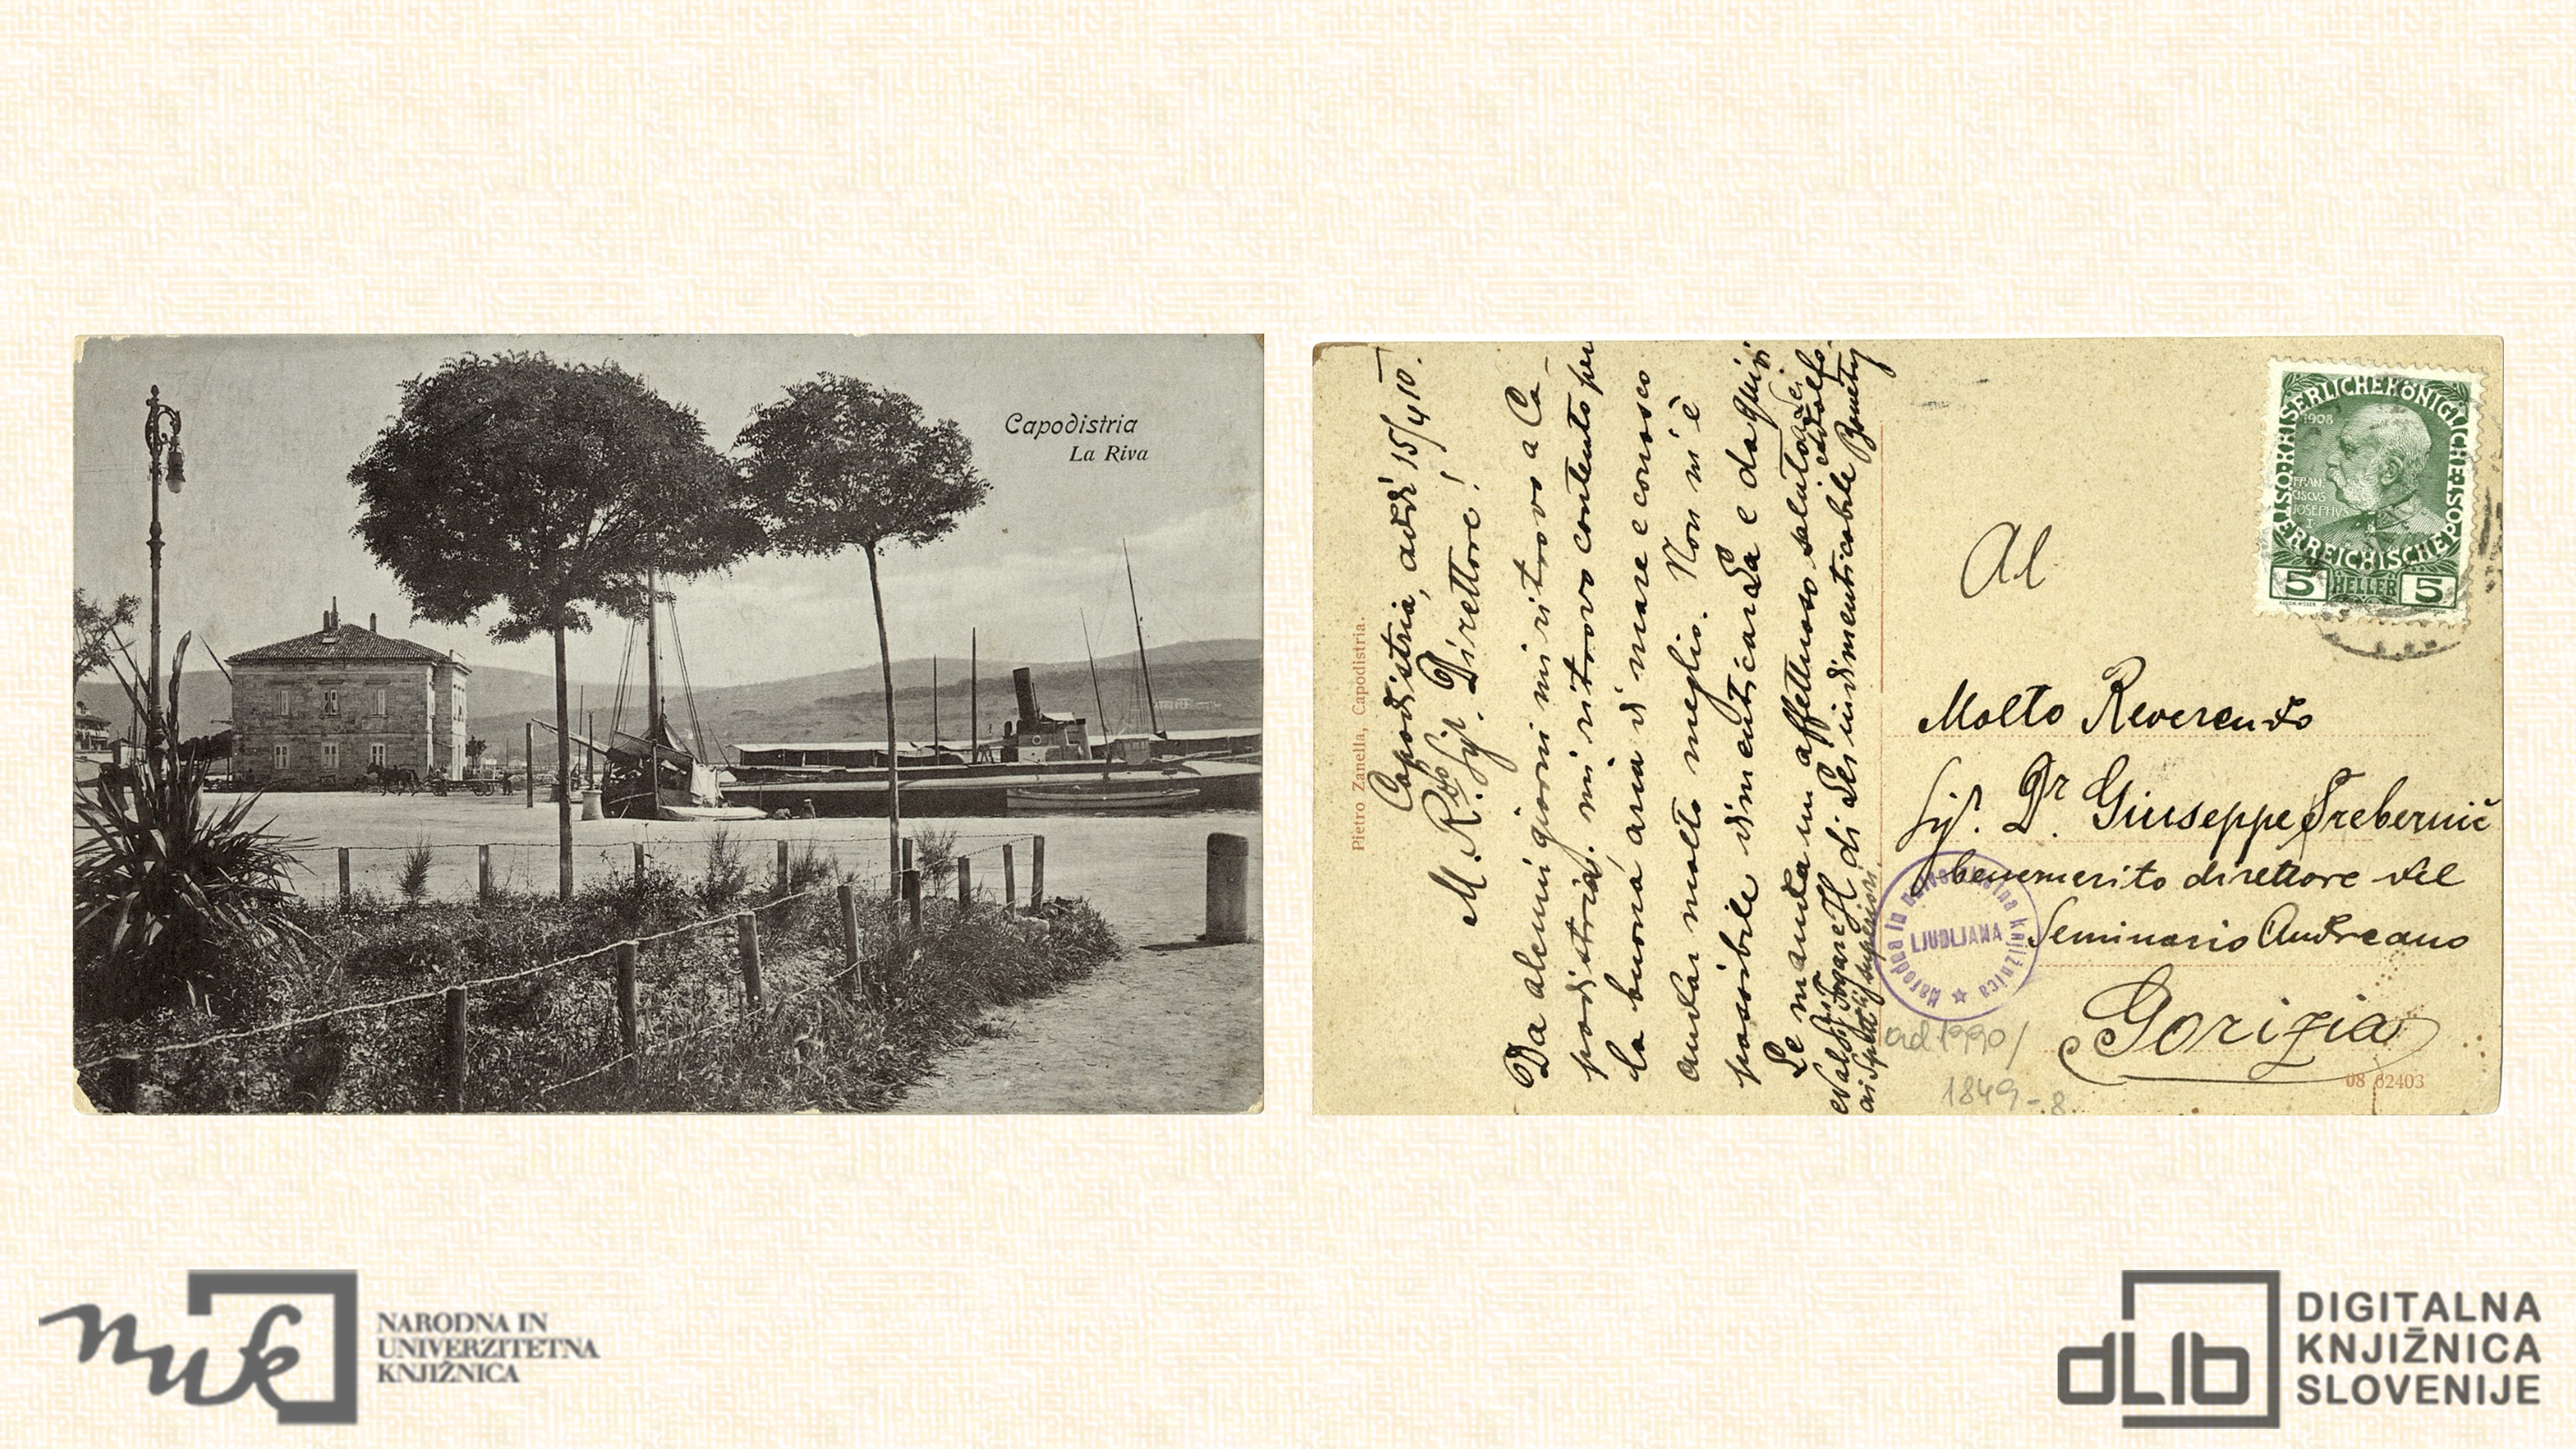 Capodistria
La Riva
Pietro Zanella, Capodistria.
Capodistria, addì 15/4 10.
M. R.do Sig. Direttore!
Da alcuni giorni mi ritrovo a Ca-
podistria. mi ritrovo contento per
la buona aria di mare e conosco
andar molto meglio. Non mi è
possibile dimenticarLa e da quivi
Le manda un affettuoso saluto
di Lei indimenticabile
ai superiori.
Al
Molto Reverendo
Sig. Dr. Giuseppe Srebernič
benemerito direttore del
Seminario Andreano
Gorizia
KAISERLICHEKÖNIGLICHE POST
ÖSTERREICHISCHE
1908
FRAN
CISCVS
JOSEPHVS
I
5 HELLER 5
Narodna in univerzitetna knjižnica
LJUDLJANA
ad 1990/
1849-8
08 62403
nuk
NARODNA IN
UNIVERZITETNA
KNJIŽNICA
dLib
DIGITALNA
KNJIŽNICA
SLOVENIJE